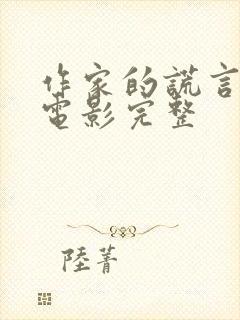 作家的謊言
電影完整
陸菁